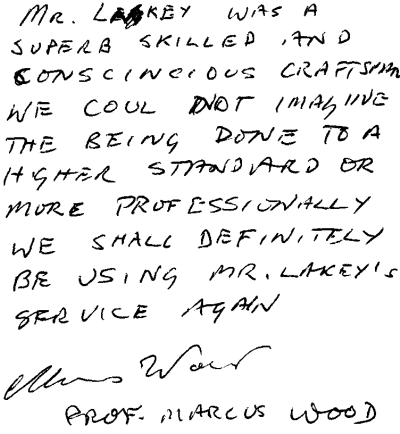 MR. LAKEY WAS A
SUPERB SKILLED AND
CONSCINCIOUS CRAFTSMAN
WE COUL NOT IMAGINE
THE BEING DONE TO A
HIGHER STANDARD OR
MORE PROFESSIONALLY
WE SHALL DEFINITELY
BE USING MR. LAKEY'S
SERVICE AGAIN
Marcus Wood
PROF. MARCUS WOOD